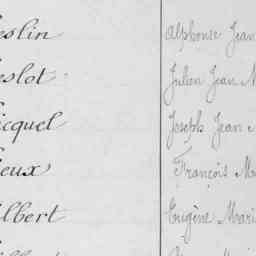 eslin Alphonse Jean
eslot Julien Jean M
icquel Joseph Jean M
ieux François Ma
lbert Eugène Mari